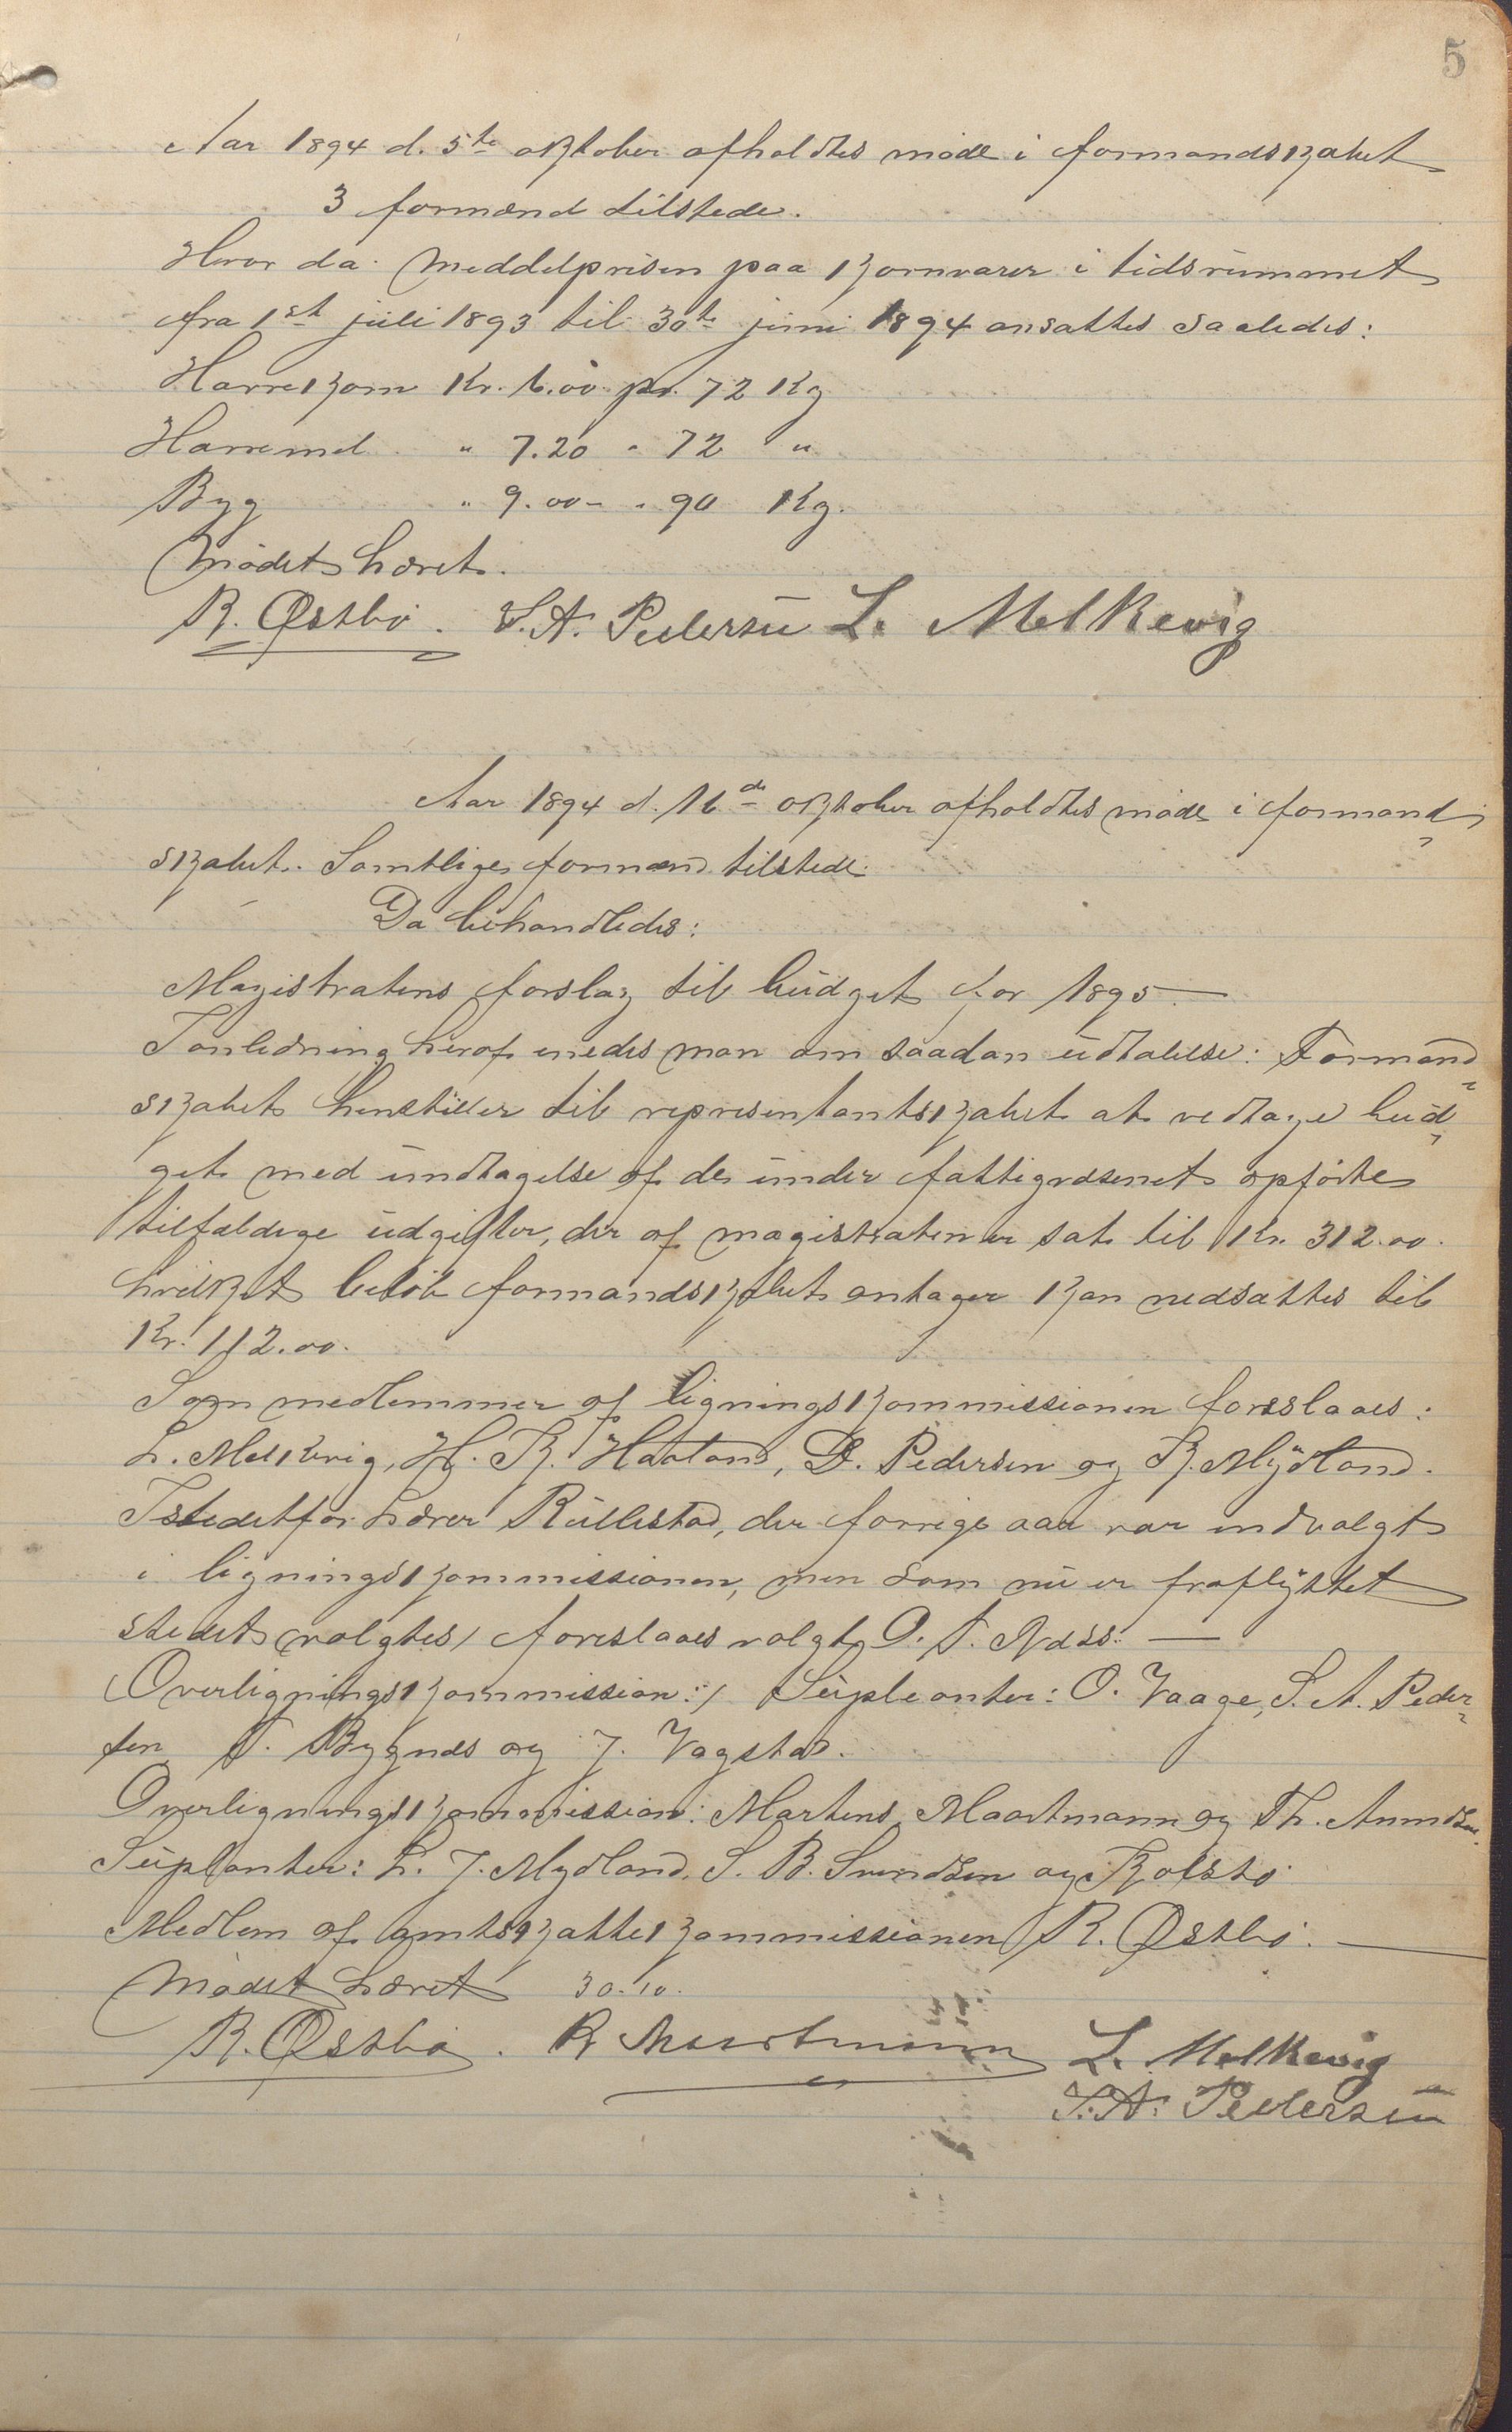 5
Aar 1894 d. 5te oktober afholdtes møde i formandskabet
3 formænd tilstede.
Hvor da meddelprisen paa kornvarer i tidsrummet
fra 1st juli 1893 til 30te juni 1894 ansattes saaledes:
Havrekorn Kr. 6.00 pr. 72 Kg
Havremel " 7.20 " 72 "
Byg " 9.00 - " 90 Kg.
Mødet hævet.
R. Østbø. S. A. Pedersen L. Melkevig
Aar 1894 d. 16de oktober afholdtes møde i formand„
skabet. Samtlige formænd tilstede.
Da behandledes:
Magistratens forslag til budget for 1895 —
I anledning heraf enedes man om saadan udtalelse: Formand„
skabet henstiller til representantskabet at vedtage bud„
get med undtagelse af de under fattigvæsenet opførte
tilfældige udgifter, der af magistraten er sat til Kr. 312.00.
hvilket beløb formandskabet antager kan nedsættes til
Kr. 112.00.
Som medlemmer af ligningskommissionen foreslaaes:
L. Melkevig, H. K. Haaland, D. Pedersen og K. Mydland.
Istedetfor Lærer Rullestad, der forrige aar var indvalgt
i ligningskommissionen, men som nu er fraflyttet
stedet (valgtes) foreslaaes valgt O. T. Næss. —
(Overligningskommission:) Supleanter: O. Vaage, S. A. Peder„
sen T. Bygnes og J. Vagstad.
Overligningskommission: Martens, Maartmann og Th. Amundsen.
Suplanter: L. J. Mydland, S. B. Svendsen og Kolstø.
Medlem af amtsskattekommissionen R. Østbø. —
Mødet hævet 30.10.
R. Østbø. R Maartmann L. Melkevig
S. A. Pedersen